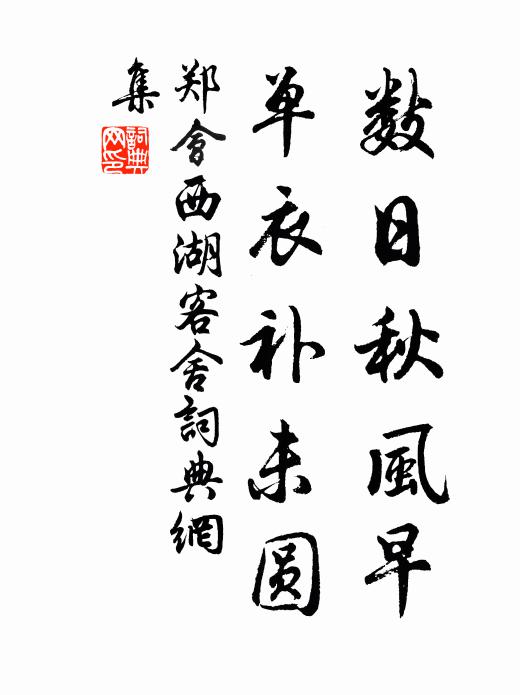 数日秋風早
单衣补未圆
郑會西湖客舍詞典網
集
詞典網印